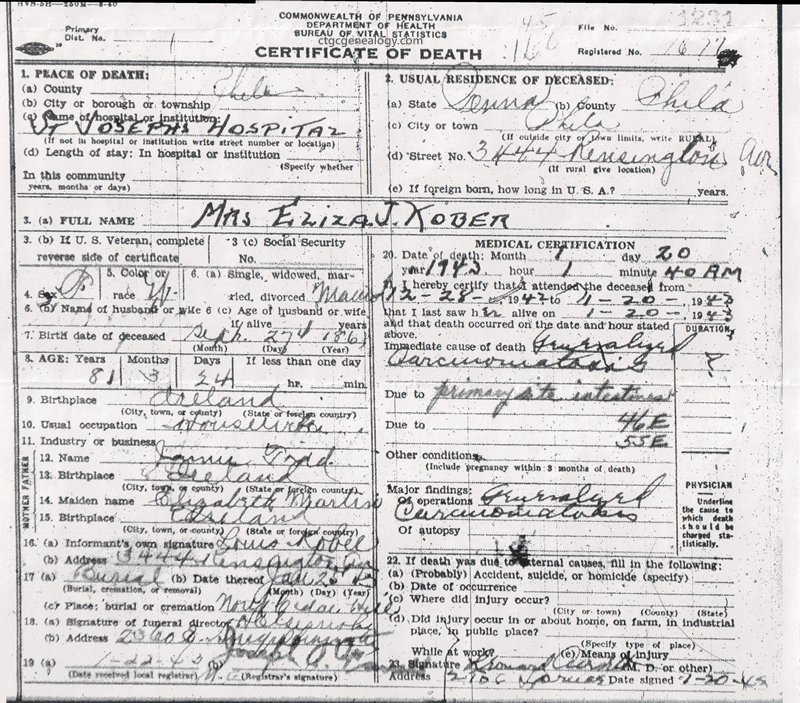 HVS-5H—250M—8-40
COMMONWEALTH OF PENNSYLVANIA
DEPARTMENT OF HEALTH
BUREAU OF VITAL STATISTICS
ctgcgenealogy.com
CERTIFICATE OF DEATH
Primary
Dist. No.
45
166
File No.
Registered No. 1677
1. PLACE OF DEATH:
(a) County Phila
(b) City or borough or township
(c) Name of hospital or institution:
ST JOSEPHS HOSPITAL
(If not in hospital or institution write street number or location)
(d) Length of stay: In hospital or institution
(Specify whether
In this community
years, months or days)
2. USUAL RESIDENCE OF DECEASED:
(a) State Penna (b) County Phila
(c) City or town Phila
(If outside city or town limits, write RURAL)
(d) Street No. 3444 Kensington Ave
(If rural give location)
(e) If foreign born, how long in U. S. A.? years.
3. (a) FULL NAME MRS ELIZA J. KOBER
3. (b) If U. S. Veteran, complete
reverse side of certificate
3 (c) Social Security
No.
4. Sex F
5. Color or
race W
6. (a) Single, widowed, mar-
ried, divorced Married
6. (b) Name of husband or wife 6 (c) Age of husband or wife
if alive years
7. Birth date of deceased Sept. 27 1861
(Month) (Day) (Year)
8. AGE: Years Months Days If less than one day
81 3 24 hr. min.
9. Birthplace Ireland
(City, town, or county) (State or foreign country)
10. Usual occupation Housewife
11. Industry or business
FATHER
12. Name Todd
13. Birthplace Ireland
(City, town, or county) (State or foreign country)
MOTHER
14. Maiden name Elizabeth Martin
15. Birthplace Ireland
(City, town, or county) (State or foreign country)
16. (a) Informant's own signature Louis Kober
(b) Address 3444 Kensington Ave
17. (a) Burial (b) Date thereof Jan 25 43
(Burial, cremation, or removal) (Month) (Day) (Year)
(c) Place: burial or cremation North Cedar Hill
18. (a) Signature of funeral director
(b) Address
19 (a) 1-22-43 (b)
(Date received local registrar) (Registrar's signature)
MEDICAL CERTIFICATION
20. Date of death: Month 1 day 20
year 1943 hour 1 minute 40 AM
I hereby certify that I attended the deceased from
12-28-1942 to 1-20-1943
that I last saw her alive on 1-20-1943
and that death occurred on the date and hour stated
above.
DURATION
Immediate cause of death Generalized
Carcinomatosis ?
Due to primary site intestines
Due to 46E
55E
Other conditions
(Include pregnancy within 3 months of death)
Major findings:
Of operations Generalized
Carcinomatosis
Of autopsy
PHYSICIAN
Underline
the cause to
which death
should be
charged sta-
tistically.
22. If death was due to external causes, fill in the following:
(a) (Probably) Accident, suicide, or homicide (specify)
(b) Date of occurrence
(c) Where did injury occur?
(City or town) (County) (State)
(d) Did injury occur in or about home, on farm, in industrial
place, in public place?
(Specify type of place)
While at work? (e) Means of injury
23. Signature (M. D. or other)
Address Date signed 1-20-43